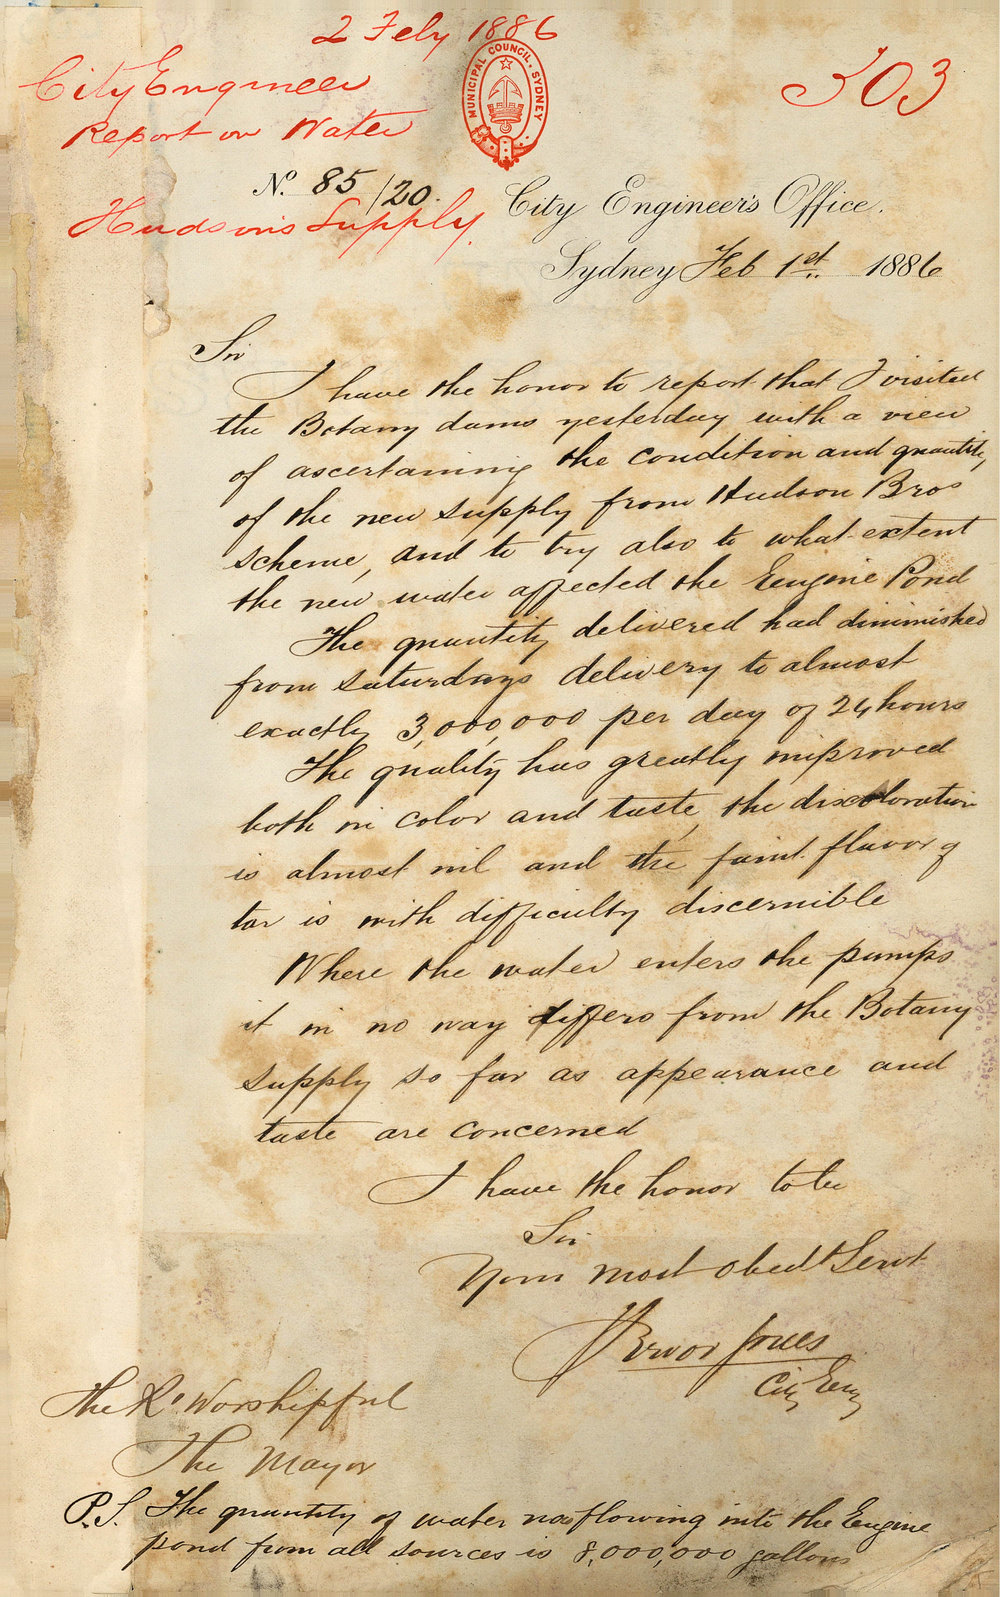 2 Feby 1886
MUNICIPAL COUNCIL, SYDNEY
City Engineer
503
Report on Water
No. 85/20.
Hudson's Supply.
City Engineer's Office.
Sydney Feb 1st. 1886
Sir
I have the honor to report that I visited
the Botany dams yesterday with a view
of ascertaining the condition and quantity
of the new supply from Hudson Bros
scheme, and to try also to what extent
the new water affected the Engine Pond
The quantity delivered had diminished
from Saturdays delivery to almost
exactly 3,000,000 per day of 24 hours
The quality has greatly improved
both in color and taste, the discoloration
is almost nil and the faint flavor of
tar is with difficulty discernible
Where the water enters the pumps
it in no way differs from the Botany
supply so far as appearance and
taste are concerned
I have the honor to be
Sir
Your most obedt Servt
Trevor Jones
City Eng
The Rt Worshipful
The Mayor
P.S. The quantity of water now flowing into the Engine
pond from all sources is 8,000,000 gallons